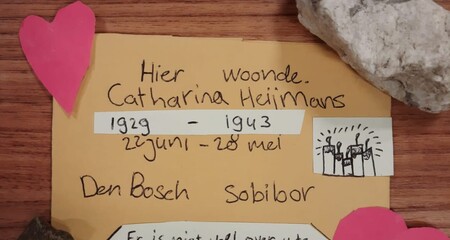 Hier woonde.
Catharina Heijmans
1929 - 1943
22 juni - 28 mei
Den Bosch Sobibor
Er is niet veel over